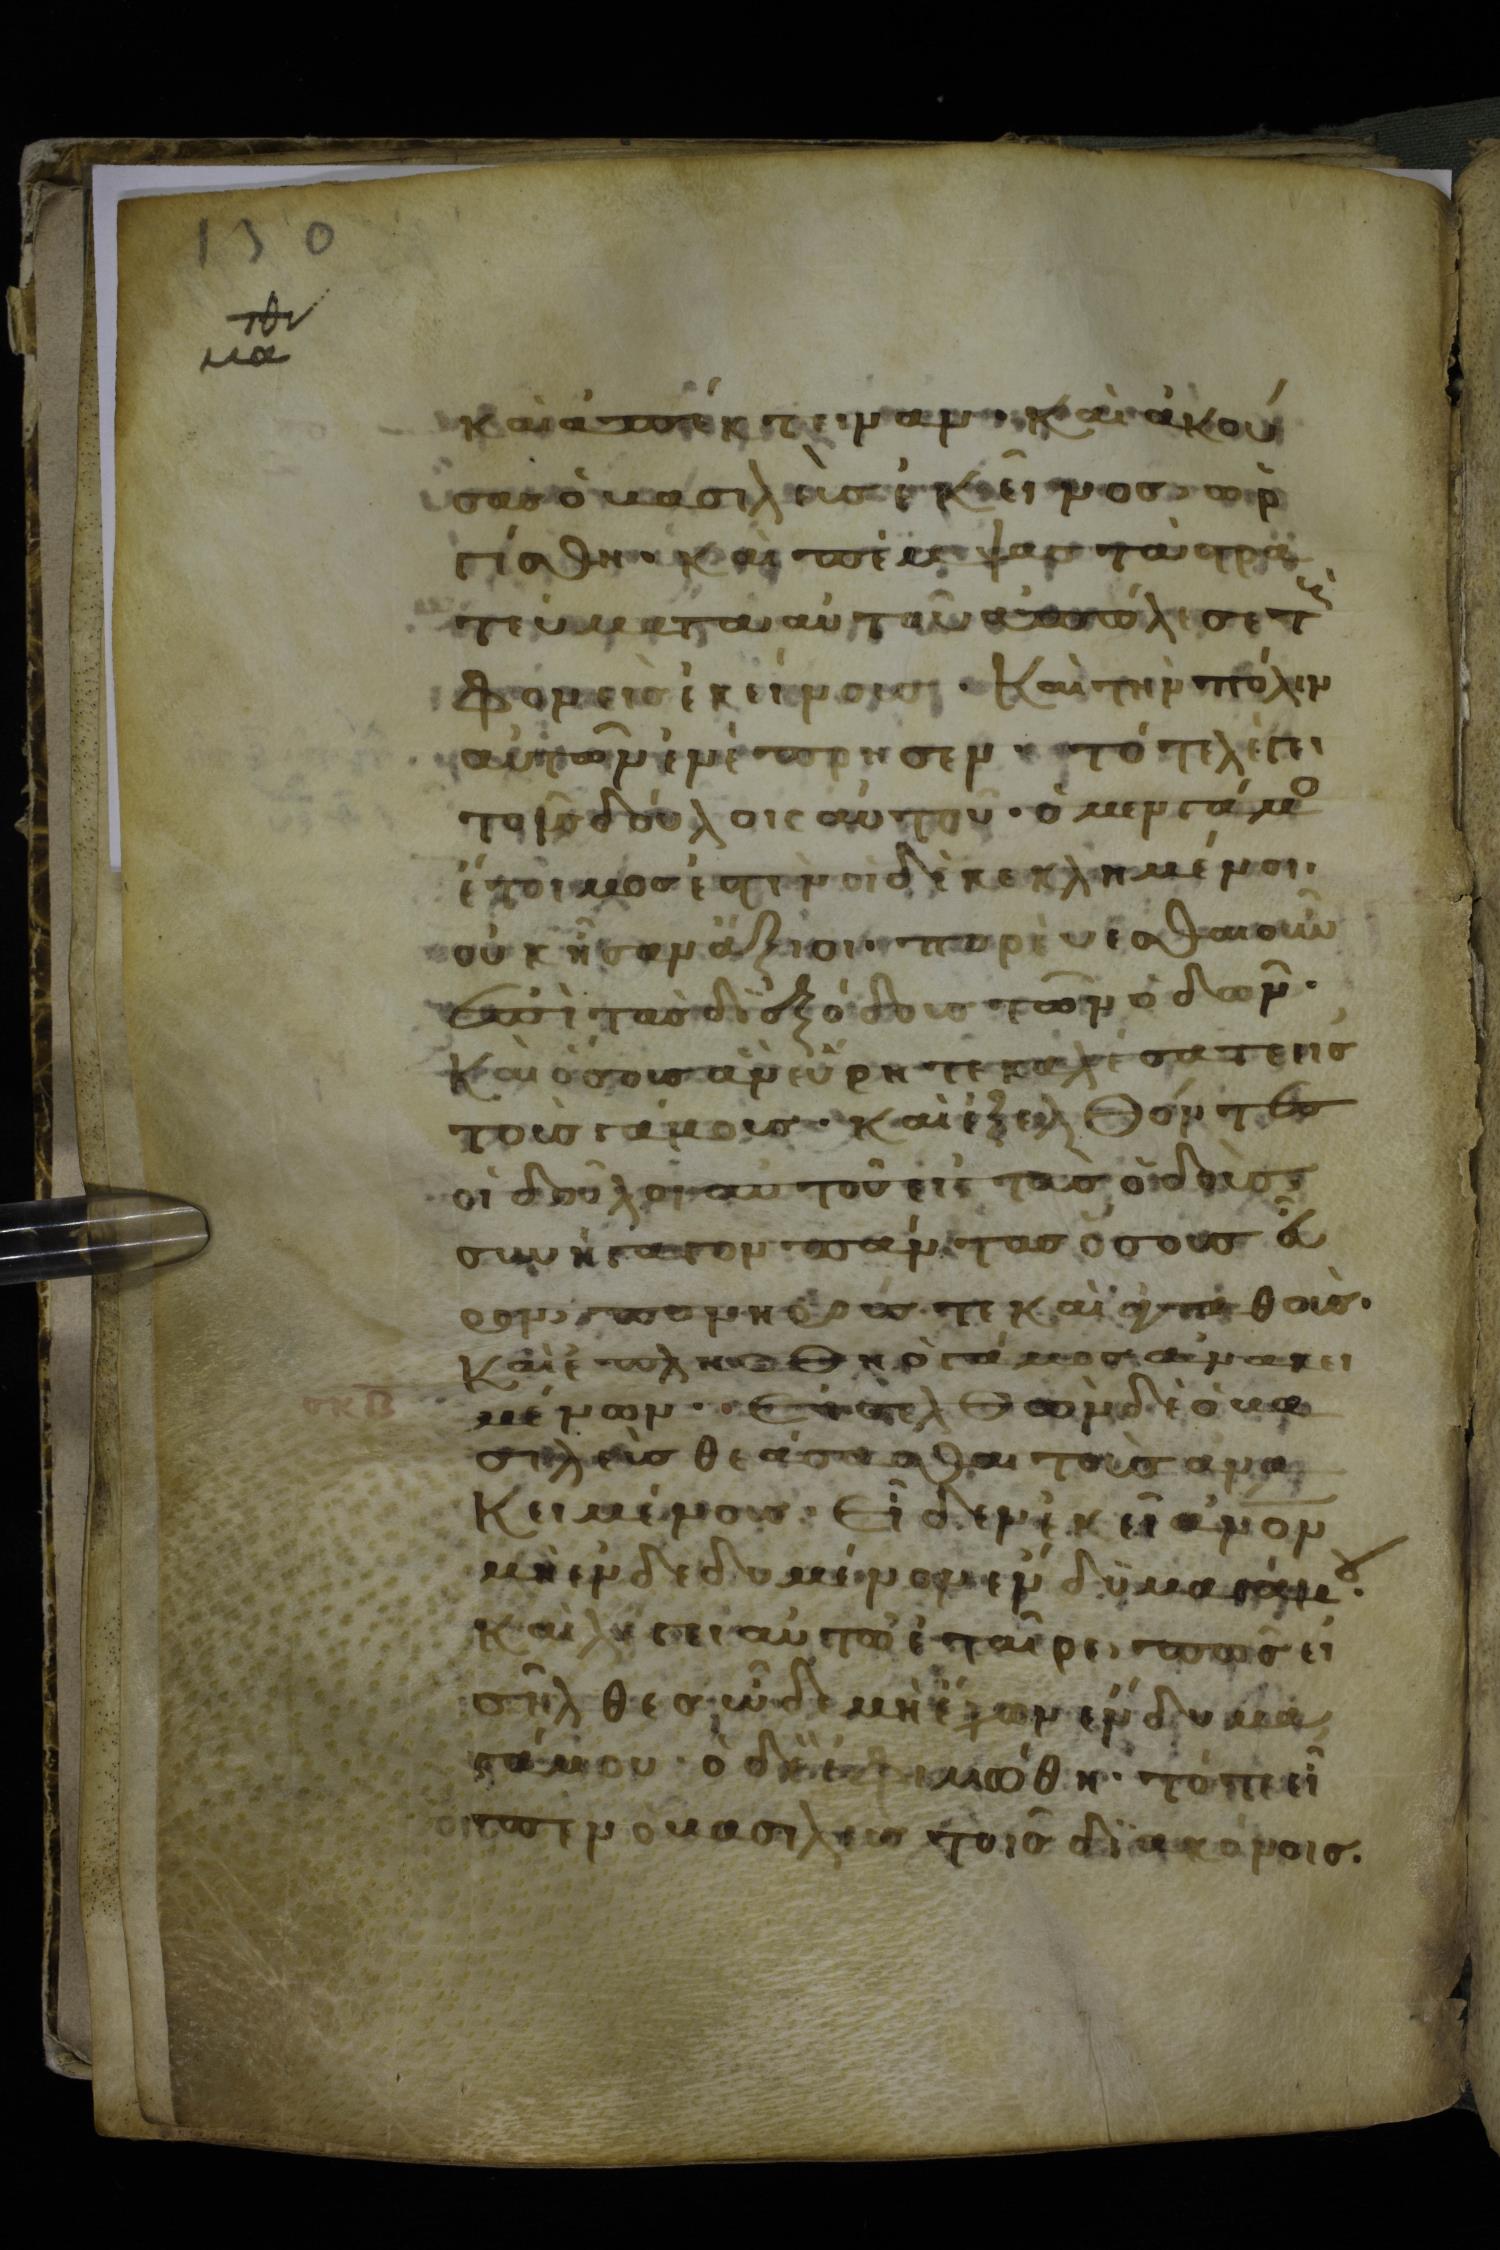 130
καὶ ἀπέκτειναν· καὶ ἀκού
σας ὁ βασιλεὺς ἐκεῖνος, ὠρ
γίσθη· καὶ πέμψας τὰ στρα
τεύματα αὐτοῦ ἀπώλεσε τ
φονεῖς ἐκείνους· Καὶ τὴν πόλιν
αὐτῶν ἐνέπρησεν· τότε λέγει
τοῖς δούλοις αὐτοῦ· ὁ μὲν γάμο
ἕτοιμος ἐστὶν οἱ δὲ κεκλημένοι·
οὐκ ἦσαν ἄξιοι· πορεύεσθαι οὖν
ἐπὶ τὰς διεξόδους τῶν ὁδῶν·
Καὶ ὅσους ἂν εὕρητε καλέσατε εἰς
τοὺς γάμους· καὶ ἐξελθόντες
οἱ δοῦλοι αὐτοῦ εἰς τὰς ὁδοὺς
συνήγαγον πάντας ὅσους εὗ
ρον, πονηρούς τε καὶ ἀγαθούς·
Καὶ ἐπλήσθη ὁ γάμος ἀνακει
μένων· Εἰσελθὼν δὲ ὁ βα
σκβ
σιλεὺς θεάσασθαι τοὺς ἀνα
Κειμένους· Εἶδεν ἐκεῖ ἄνον
μὴ ἐνδεδυμένον ἔνδυμα γάμου·
καὶ λέγει αὐτῷ ἑταῖρε, πῶς εἰ
σῆλθες ὧδε μὴ ἔχων ἔνδυμα
γάμου· ὁ δὲ ἐφιμώθη· τότε εἶ
πεν ὁ βασιλεὺς τοῖς διακόνοις.